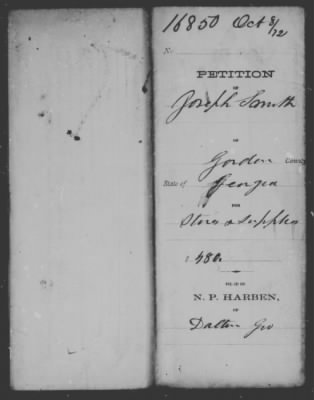 16850 Oct 8/72
No
PETITION
OF
Joseph Smith
OF
Gordon County
State of Georgia
FOR
Stores & Supplies
$ 480.
FILED BY
N. P. HARBEN,
OF
Dalton Geo